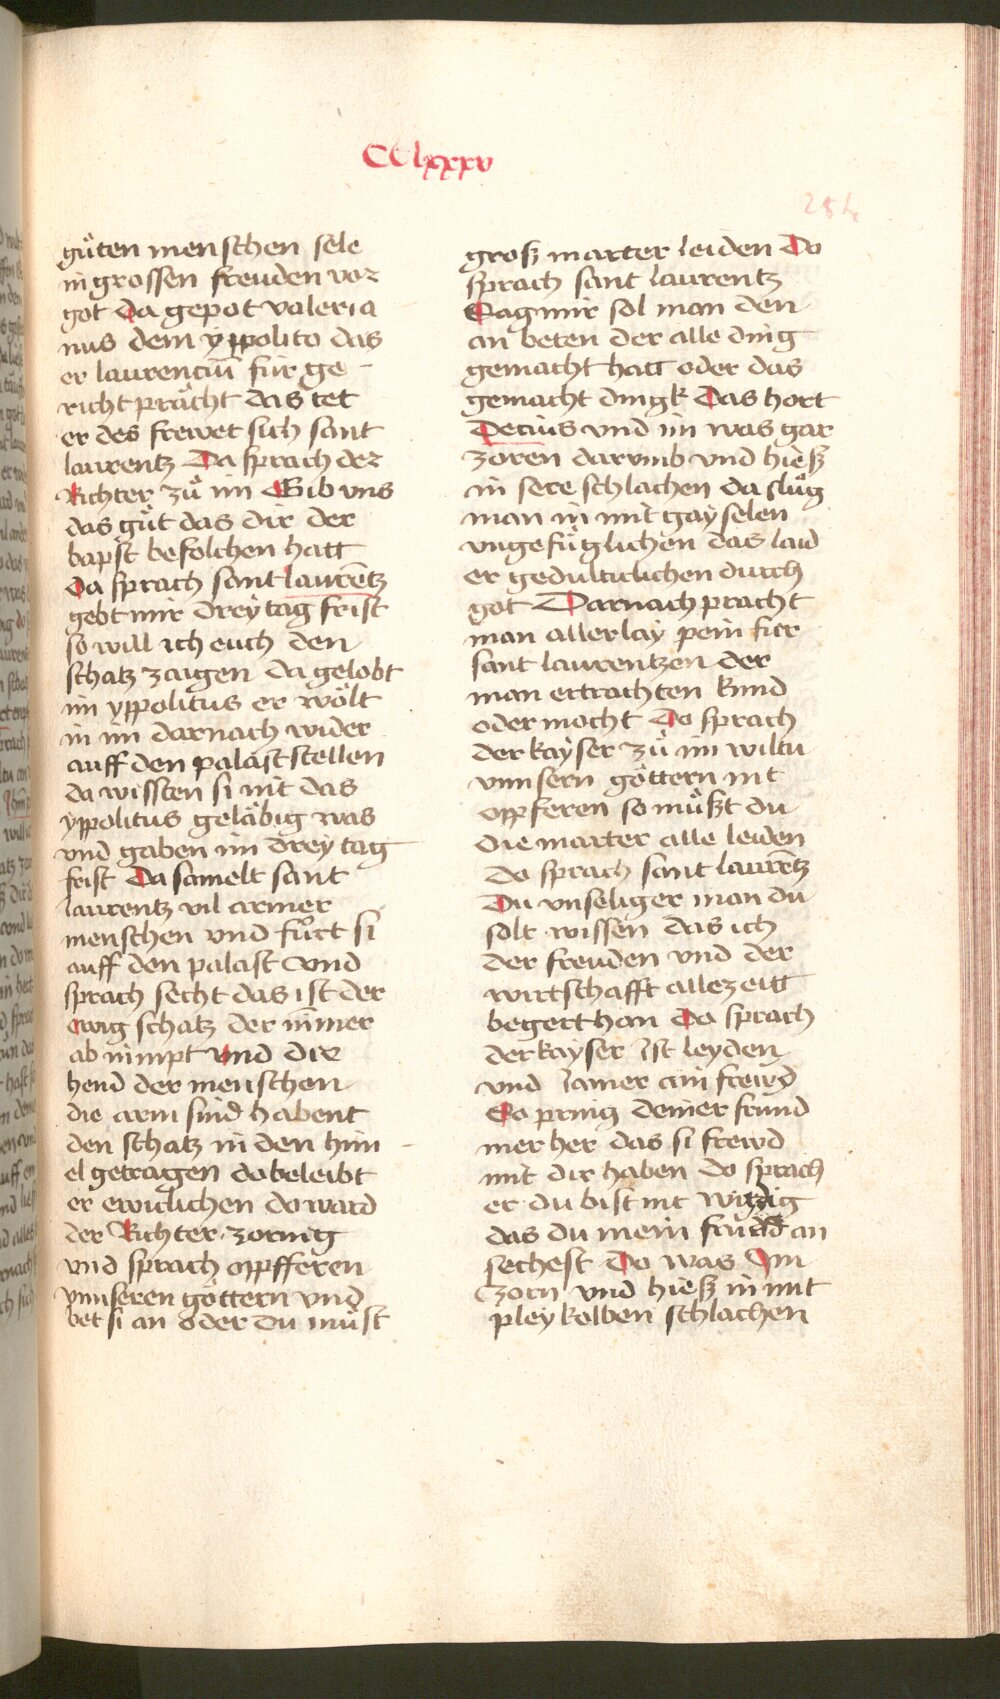 CClxxxv
284
gůten menschen sele
in grossen freuden vor
got Da gepot valeria
nus dem yppolito das
er laurenciū für ge -
richt prächt das tet
er des frewet sich sant
laurentz Da sprach der
Richter zů im Gib vns
das gůt das dir der
bapst befolchen hatt
Da sprach sant laurētz
gebt mir drey tag frist
so will ich euch den
schatz zaigen da gelobt
im yppolitus er wölt
in im darnach wider
auff den palast stellen
da wissten si nit das
yppolitus geläbig was
vnd gaben im drey tag
frist Da samelt sant
laurentz vil armer
menschen vnd fůrt si
auff den palast vnd
sprach secht das ist der
ewig schatz der nimer
ab nimpt vnd die
hend der menschen
die arm sind habent
den schatz in den him -
el getragen do beleibt
er ewiclichen do ward
der Richter zornig
vnd sprach oppfferen
vnnseren göttern vnd
bet si an oder du můst
groß marter leiden Do
sprach sant laurentz
Sag mir sol man den
an beten der alle ding
gemacht hatt oder das
gemacht dingk Das hort
Decius vnd im was gar
zoren darvmb vnd hieß
in sere schlachen da slůg
man in mit gayselen
vngefůglichen das laid
er gedulticlichen durch
got Darnach pracht
man allerlay pein fier
sant laurentzen der
man ertrachten kund
oder mocht Do sprach
der kayser zů im wiltu
vnnsern göttern nit
opferen so můßt du
die marter alle leiden
do sprach sant laurētz
Du vnseliger man du
solt wissen das ich
der freuden vnd der
wirtschafft allezeitt
begert han Da sprach
der kayser Ist leyden
vnd Iamer ain frewd
So pring deiner fründ
mer her das si frewd
mit dir haben do sprach
er du bist nit wirdig
das du mein fründ an
sechest Do was Im
zorn vnd hieß in mit
pley kolben schlachen